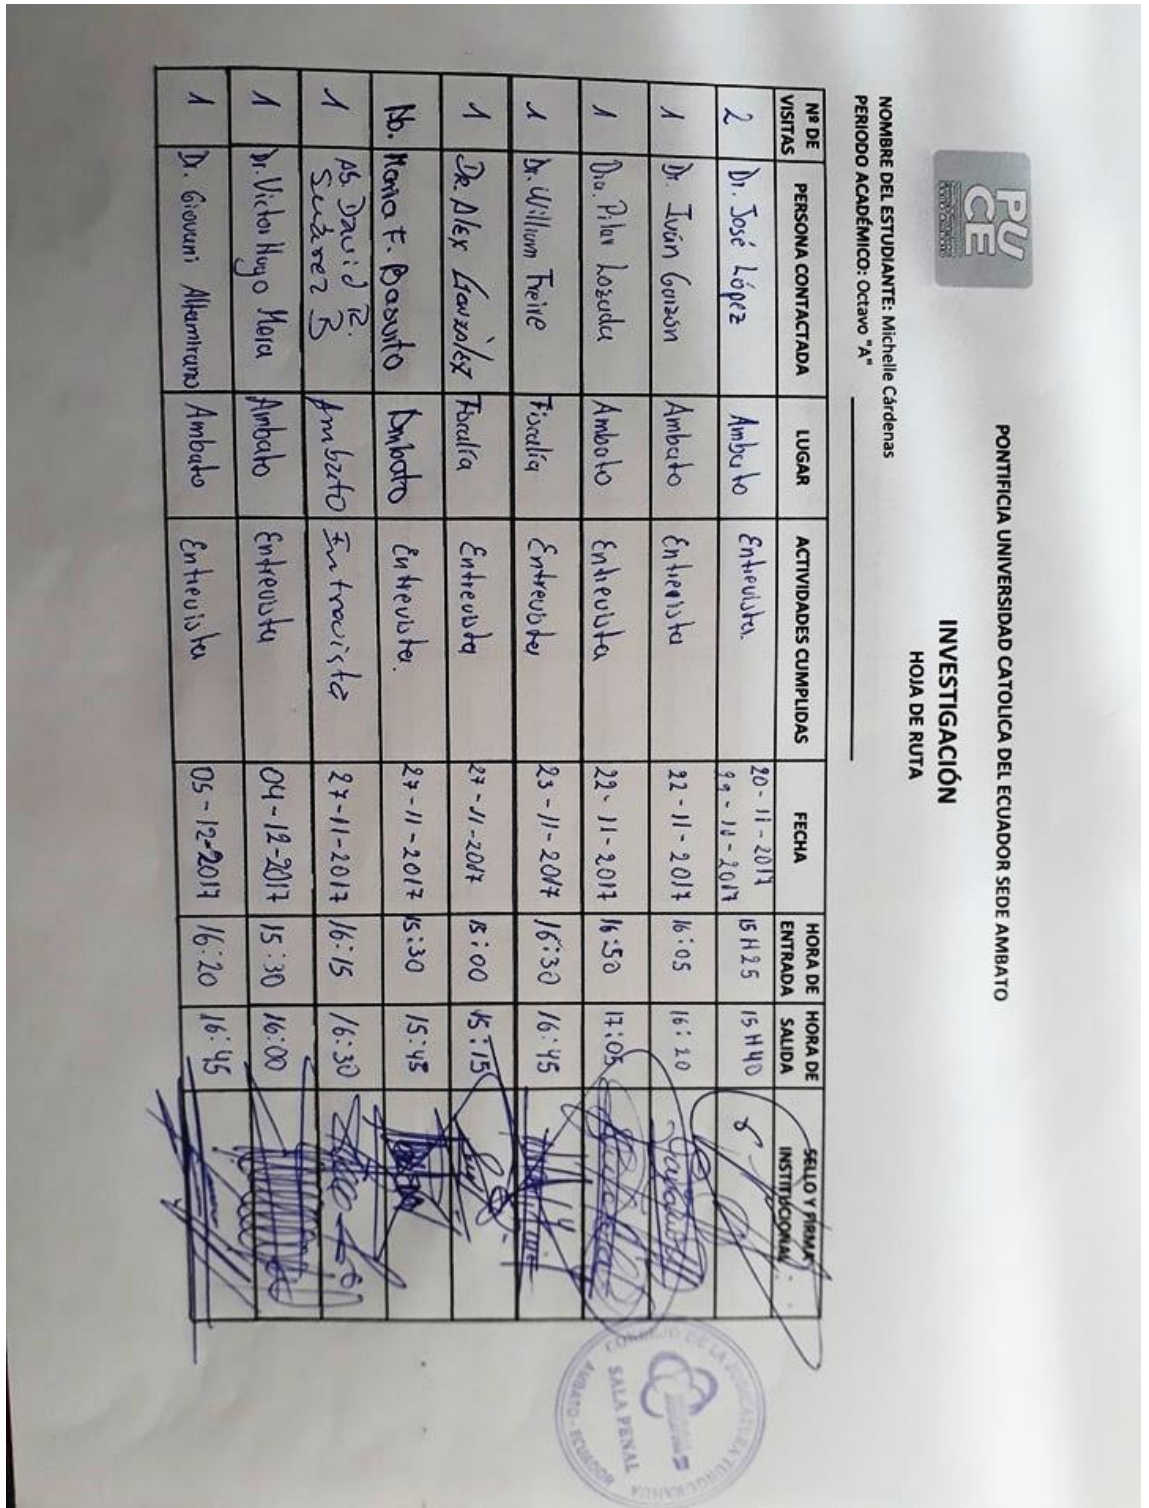 PUCE
PONTIFICIA UNIVERSIDAD CATOLICA DEL ECUADOR SEDE AMBATO
INVESTIGACIÓN
HOJA DE RUTA
NOMBRE DEL ESTUDIANTE: Michelle Cárdenas
PERIODO ACADÉMICO: Octavo "A"
Nº DE VISITAS PERSONA CONTACTADA LUGAR ACTIVIDADES CUMPLIDAS FECHA HORA DE ENTRADA HORA DE SALIDA SELLO Y FIRMA INSTITUCIONAL
2 Dr. José López Ambato Entrevista. 20-11-2017 15H25 15H40
1 Dr. Iván Garzón Ambato Entrevista 22-11-2017 16:05 16:20
1 Dra. Pilar Lozada Ambato Entrevista 22-11-2017 16:50 17:05
1 Dr. William Freire Fiscalía Entrevista 23-11-2017 16:30 16:45
1 Dr. Alex González Fiscalía Entrevista 27-11-2017 15:00 15:15
Ab. María F. Basurto Ambato Entrevista. 27-11-2017 15:30 15:45
1 Ab. David R. Suárez B Ambato Entrevista 27-11-2017 16:15 16:30
1 Dr. Victor Hugo Mora Ambato Entrevista 04-12-2017 15:30 16:00
1 Dr. Giovanni Altamirano Ambato Entrevista 05-12-2017 16:20 16:45
CONSEJO DE LA JUDICATURA TUNGURAHUA
SALA PENAL
AMBATO - ECUADOR